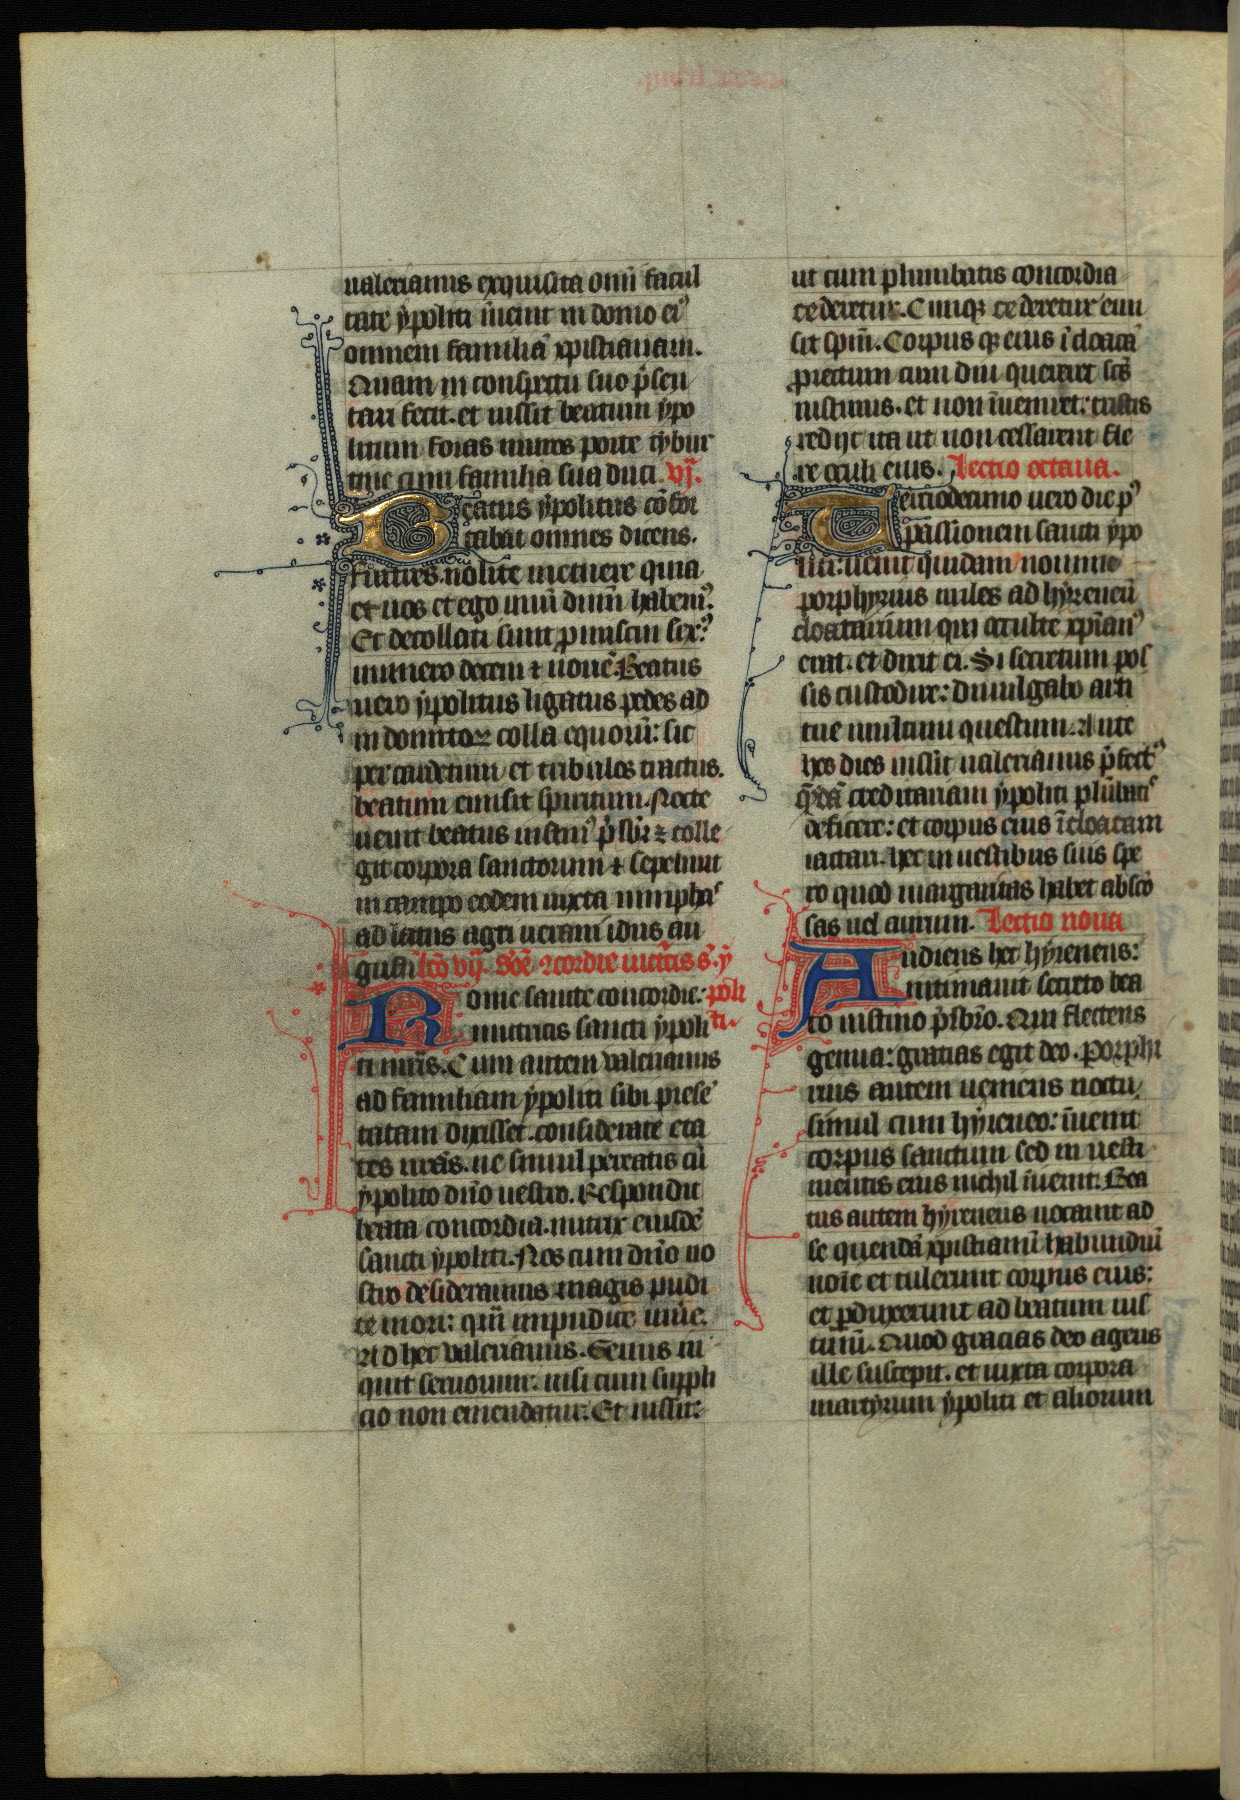 ualerianus exquisita om̄i facul
tate ẏpoliti īuenit in domo ei⁹
omnem familiā xpistianam.
Quam in conspectu suo p̄sen
tari fecit. et iussit beatum ẏpo
litum foras muros porte tẏbur
tine cum familia sua duci. vj.
Beatus ẏpolitus cōfor
tabat omnes dicens.
Fratres. nolite metuere quia
et uos et ego unū dnm̄ habem⁹.
Et decollati sunt promiscui sex⁹:
numero decem ⁊ nouē. Beatus
uero ẏpolitus ligatus pedes ad
indomitoꝝ colla equorū: sic
per cardetum et tribulos tractus.
beatum emisit spiritum. Nocte
uenit beatus iustin⁹ p̄sbr̄ ⁊ colle
git corpora sanctorum ⁊ sepeliuit
in campo eodem iuxta nimpha
ad latus agri uerani idus au
gusti. lc̄o vij. Sc̄e ↄcordie nut̄cis s. ẏ
Rome sancte concordie: poli
nutricis sancti ẏpoli ti.
ti mr̄is. Cum autem valerianus
ad familiam ẏpoliti sibi presē
tatam dixisset. considerate eta
tes ur̄as. ne simul pereatis cū
ẏpolito dn̄o uestro. Respondit
beata concordia. nutrix eiusdē
sancti ẏpoliti. Nos cum dn̄o no
stro desideramus magis pudi
ce mori: qm̄ impudice uiue.
Ad hec valerianus. Genus in
quit seruorum. nisi cum suppli
cio non emendatur. Et iussit:
ut cum plumbatis concordia
cederetur. Cumqꝫ cederetur emi
sit spm̄. Corpusqꝫ eius ī cloacā
proiectum cum diu quereret scs̄
iustinus. et non īueniret: tristis
redijt ita ut non cessarent fle
re oculi eius. Lectio octaua.
Terciodecimo uero die p⁹
passionem sancti ẏpo
liti: uenit quidam nomine
porphyrius miles ad hẏreneū
cloacarium qui oculte xp̄ian⁹
erat. et dixit ei. Si secretum pos
sis custodire: diuulgabo arti
tue multum questum. Ante
hos dies iussit ualerianus p̄fect⁹
q̄dā creditariam ẏpoliti plūbatis
deficere: et corpus eius ī cloacam
iactari. hec in uestibus suis spe
ro quod margaritas habet absco
sas uel aurum. Lectio nona
Audiens hec hẏreneus:
intimauit secreto bea
to iustino p̄sbr̄o. Qui flectens
genua: gratias egit deo. Porphi
rius autem ueniens noctu,
simul cum hẏreneo: īuenit
corpus sanctum sed in uesti
mentis eius nichil īuenit. Bea
tus autem hẏreneus uocauit ad
se quendā xpistianū habundiū
noīe et tulerunt corpus eius:
et perduxerunt ad beatum ius
tinū. Quod gracias deo agens
ille suscepit. et iuxta corpora
martẏrum ẏpoliti et aliorum